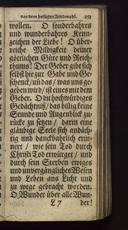 vor dem heiligen Abendmahl. 253
wollen. O sonderbahres
und wunderbahres Kenn-
zeichen der Liebe! O übe-
reiche Mildigkeit deiner
göttlichen Güte und Reich-
thums! Der Geber gibt sich
selbst hie zur Gabe und Ge-
schenck, und das, was uns ge-
geben wird, ist eines mit dem
Geber. O du hochwürdiges
Gedächtnus, das billig keine
Stunde und Augenblick zu-
rücke zu setzen, darin eine
gläubige Seele sich andäch-
tig und danckbarlich erin-
nert, wie sein Tod durch
Christi Tod erwürget, und
durch sein Sterben ewiges
und unvergängliches Wesen
und Leben ans Licht und
zu wege gebracht worden.
O Wunder über alle Wun-
L 7 der!